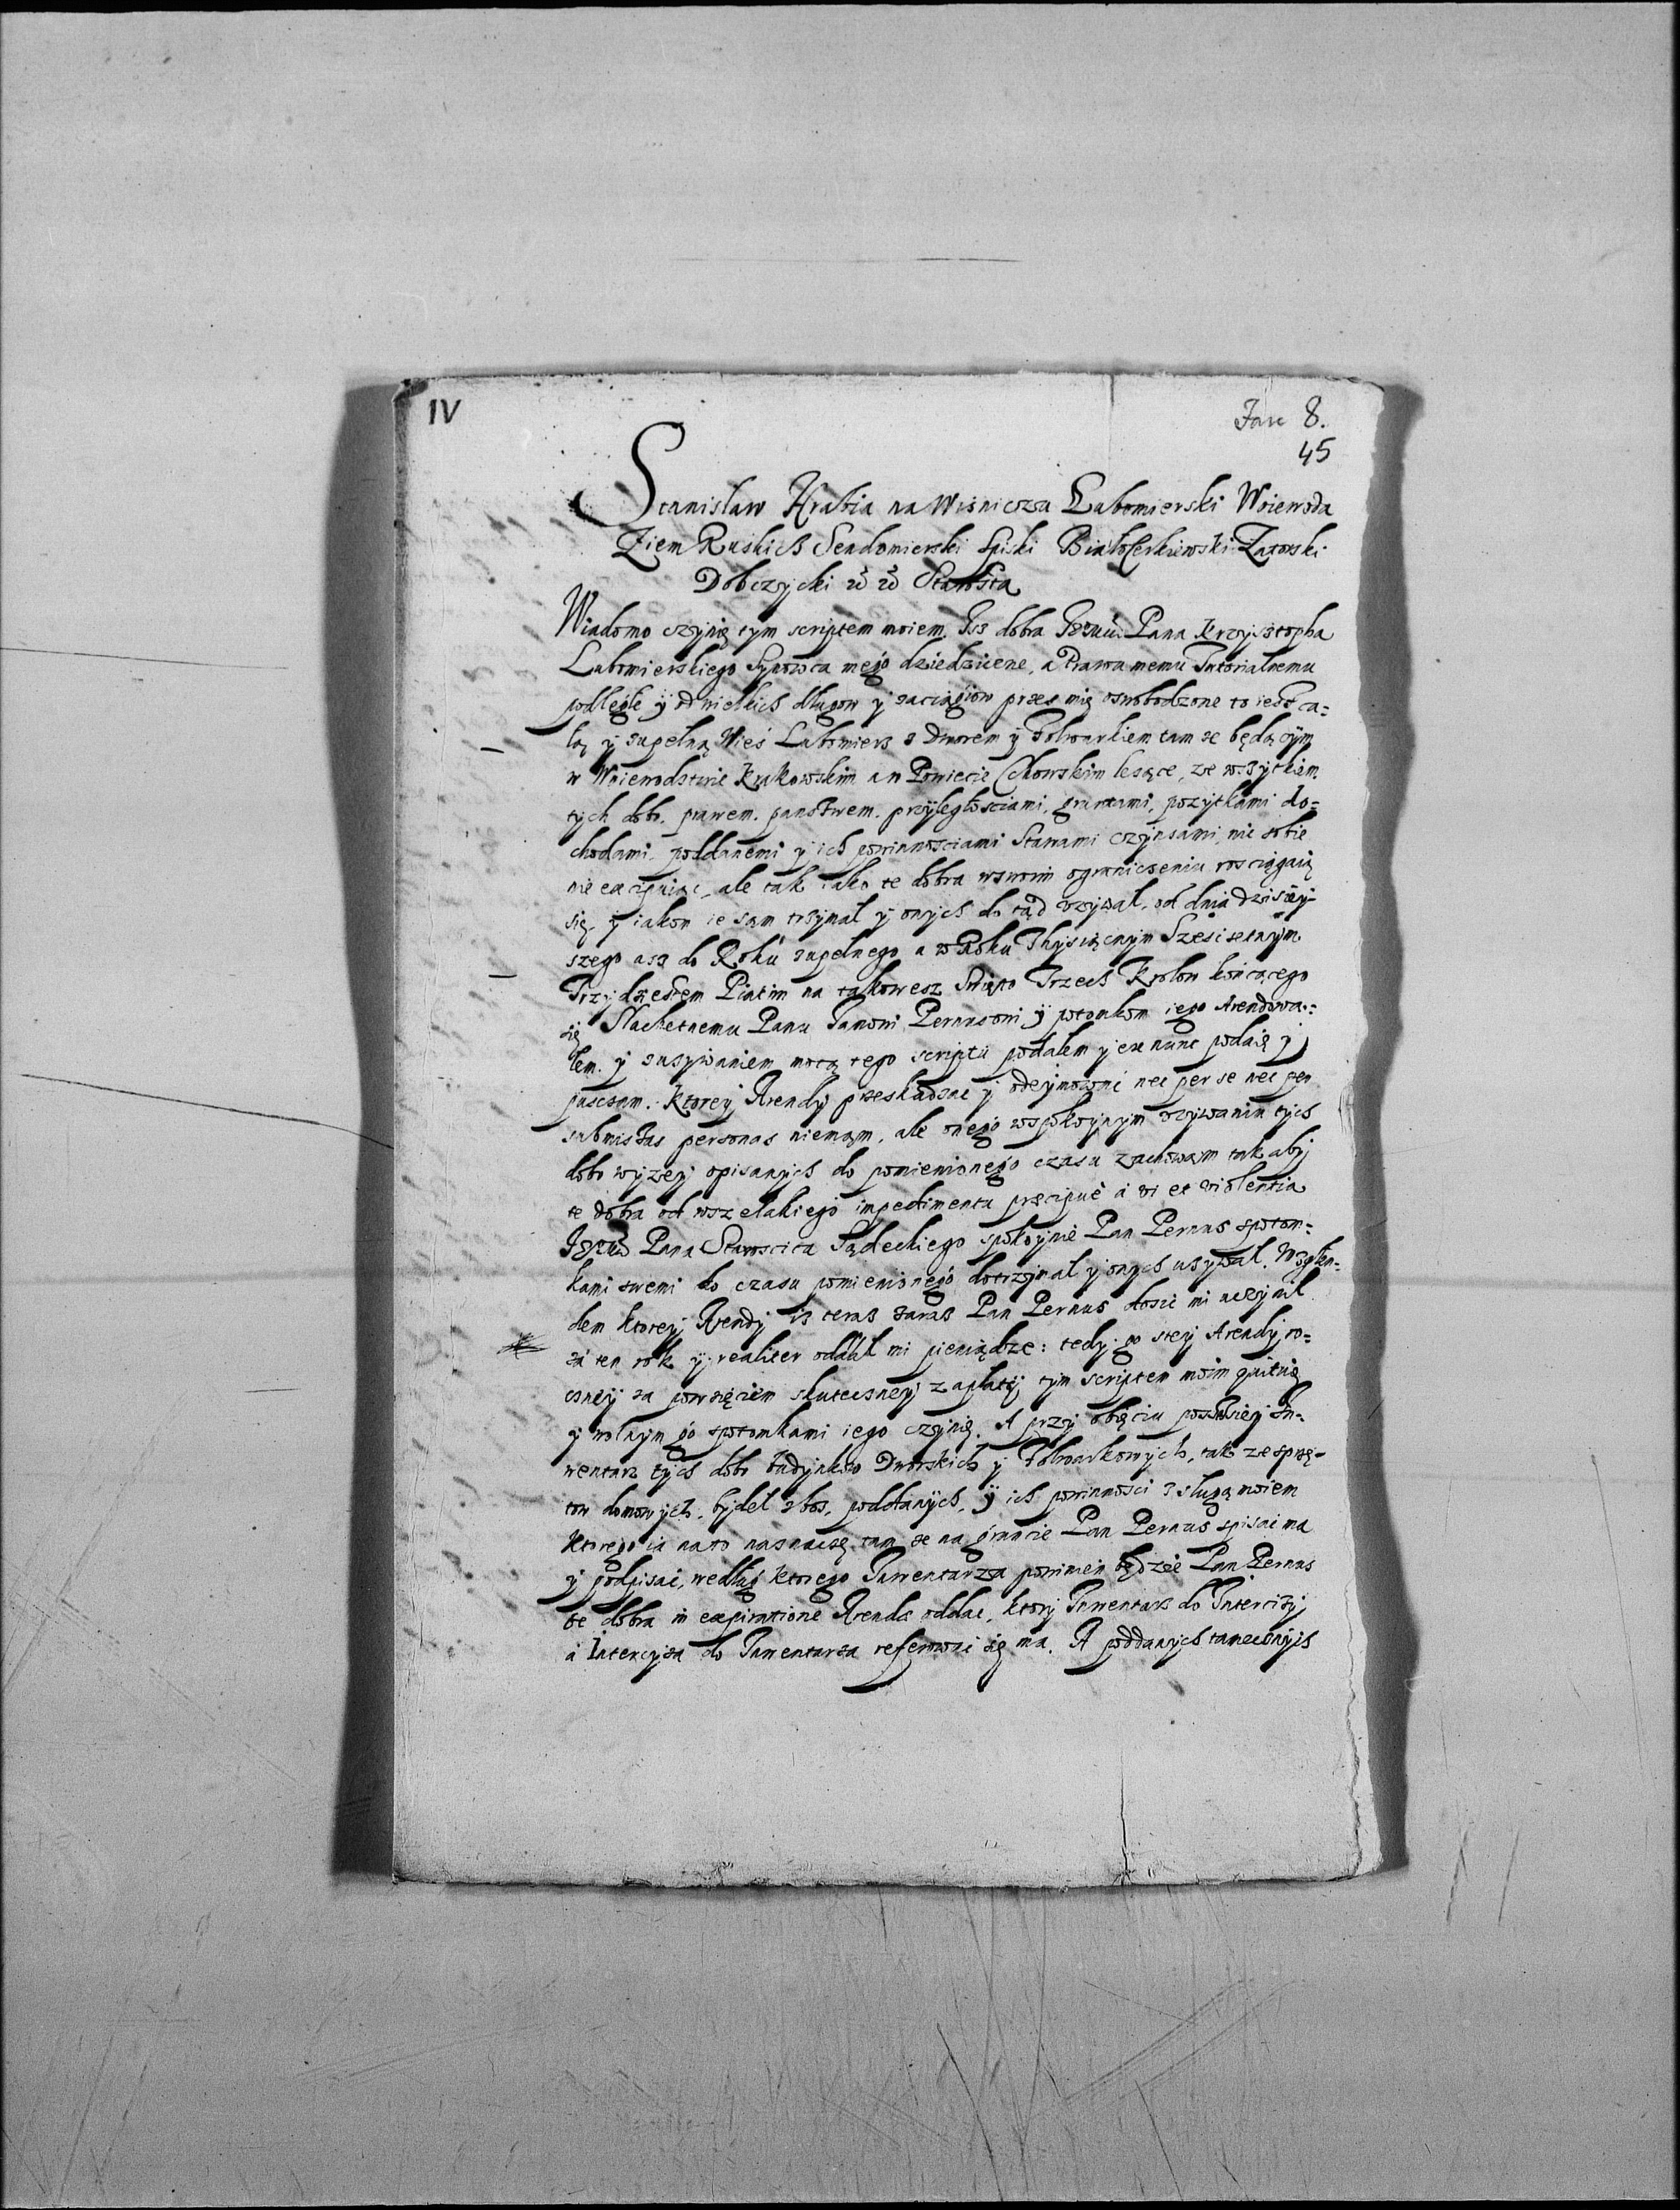 IV
Fasc 8.
45
Stanisław Hrabia na Wisniczu Lubomierski Woiewoda
Ziem Ruskich Sendomierski Spiski Białocerkiewski Zatorski
Dobczycki Starosta
Wiadomo czynię tym scriptem moiem. Isz dobra Pana Krzysztopha
Lubomierskiego Synowca mego dziedziczne, a Prawu memu Tutorialnemu
podległe y od wielkich długow y zaciągow przez mię oswobodzone to iest ca=
łą y zupełną Wieś Lubomierz z Dworem y Folwarkiem tam ze będącym
w Woiewodstwie Krakowskim a w Powiecie Czchowskim leżące, ze wszytkiem
tych dobr. prawem. panstwem. przyległosciami, gruntami, pozytkami do=
chodami, poddanemi y ich powinnosciami Stawami czynszami, nic sobie
nie excypuiąc, ale tak iako te dobra wswoim ograniczeniu rosciągaią
się, y iakom ie sam trzymał y onych do tąd vzywał, od dnia dzisiey=
szego asz do Roku zupełnego a w Roku Thysiącnym Szescsetnym
Trzydziestem Piatim na takowesz Swięto Trzech Krolow kończącego
się Slachetnemu Panu Janowi Pernusowi y potomkom iego Arendowa=
łem. y zuzywaniem mocą tego scriptu podałem y ex nunc podaię y
puszczam. Ktorey Arendy przeskadzac y odeymowac nec per se nec per
submissas personas niemam, ale onego wspokoynym vzywaniu tych
dobr wyzey opisanych do pomienionego czasu zachowam tak aby
te dobra od wszelakiego impedimentu præcipuè à vi et violentia
Pana Staroscica Sądeckiego spokoynie Pan Pernus spotom=
kami swemi do czasu pomienionego dotrzymał y onych uzywał. Wzglę=
dem ktorey Arendy isz teraz zaraz Pan Pernus dosic mi uczynił
za ten rok y realiter oddał mi pieniądze: tedy go stey Arendy ro=
czney za powzięciem skuteczney zapłaty tym scriptem moim quituię
y wolnym go spotomkami iego czynię. A przy obięciu possessiey In=
wentarz tych dobr budynkow Dworskich y Folwarkowych, tak ze sprzę=
tow domowych, bydeł zboz, poddanych, y ich powinnosci z sługą moiem
ktorego ia nato naznaczę tam ze na gruncie Pan Pernus spisac ma
y podpisac, według ktorego Inwentarza powinien będzie Pan Pernus
te dobra in expiratione Arendæ oddac, ktory Inwentarz do Intercizy
a Intercyza do Inwentarza referowac się ma. A poddanych tamecznych